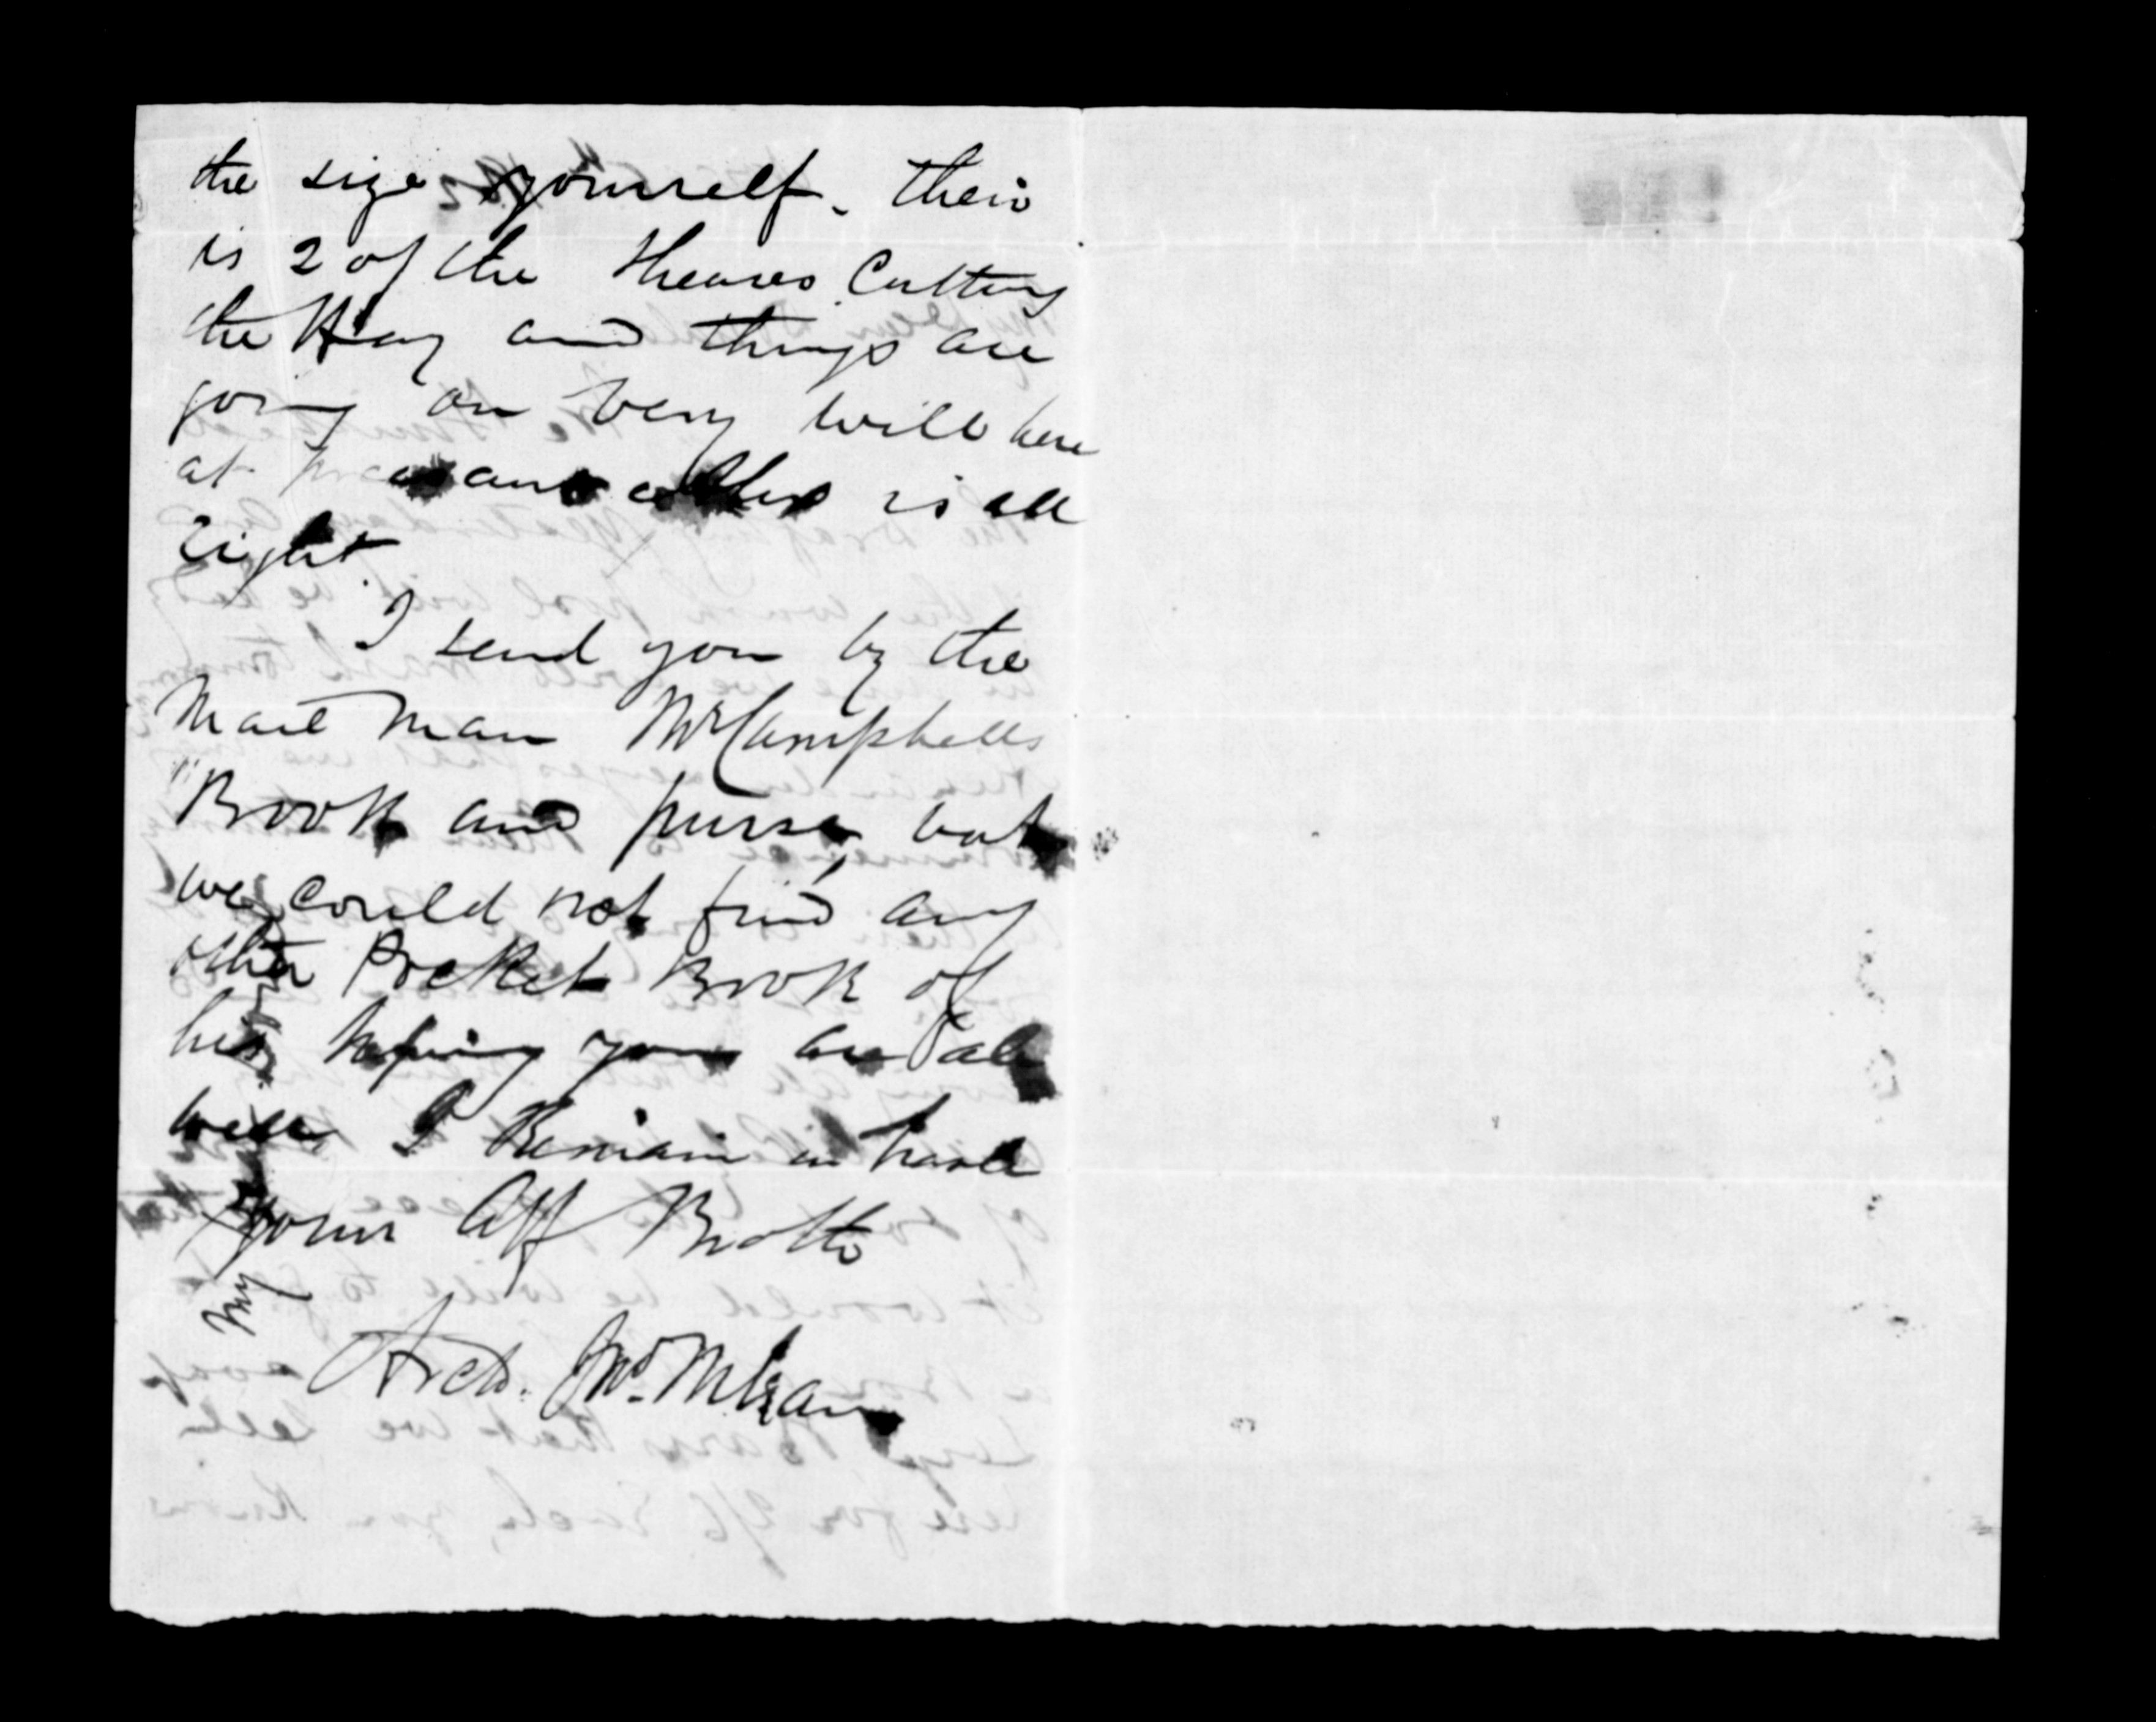 the size yourself. their
is 2 of the Shearers Cutting
the Hay and things are
going on very will here
at is all
right.
I send you by the
Mail Man Mr Campbells
Book and purse, but
we could not find any
other Pocket Book of
his hoping you are all
well I Remain in haste
yours Aff Brother
My
Arch. Jno. McLean